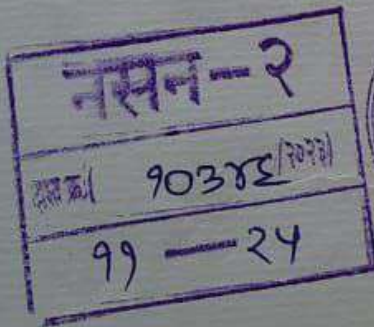 नसन-२
दस्त क्र./ १०३४६/२०२३/
११ — २५